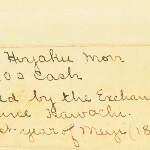 Hiyaku Mon
00 Cash
d by the Exchan
ince Kawachi
st year of Meiji (18